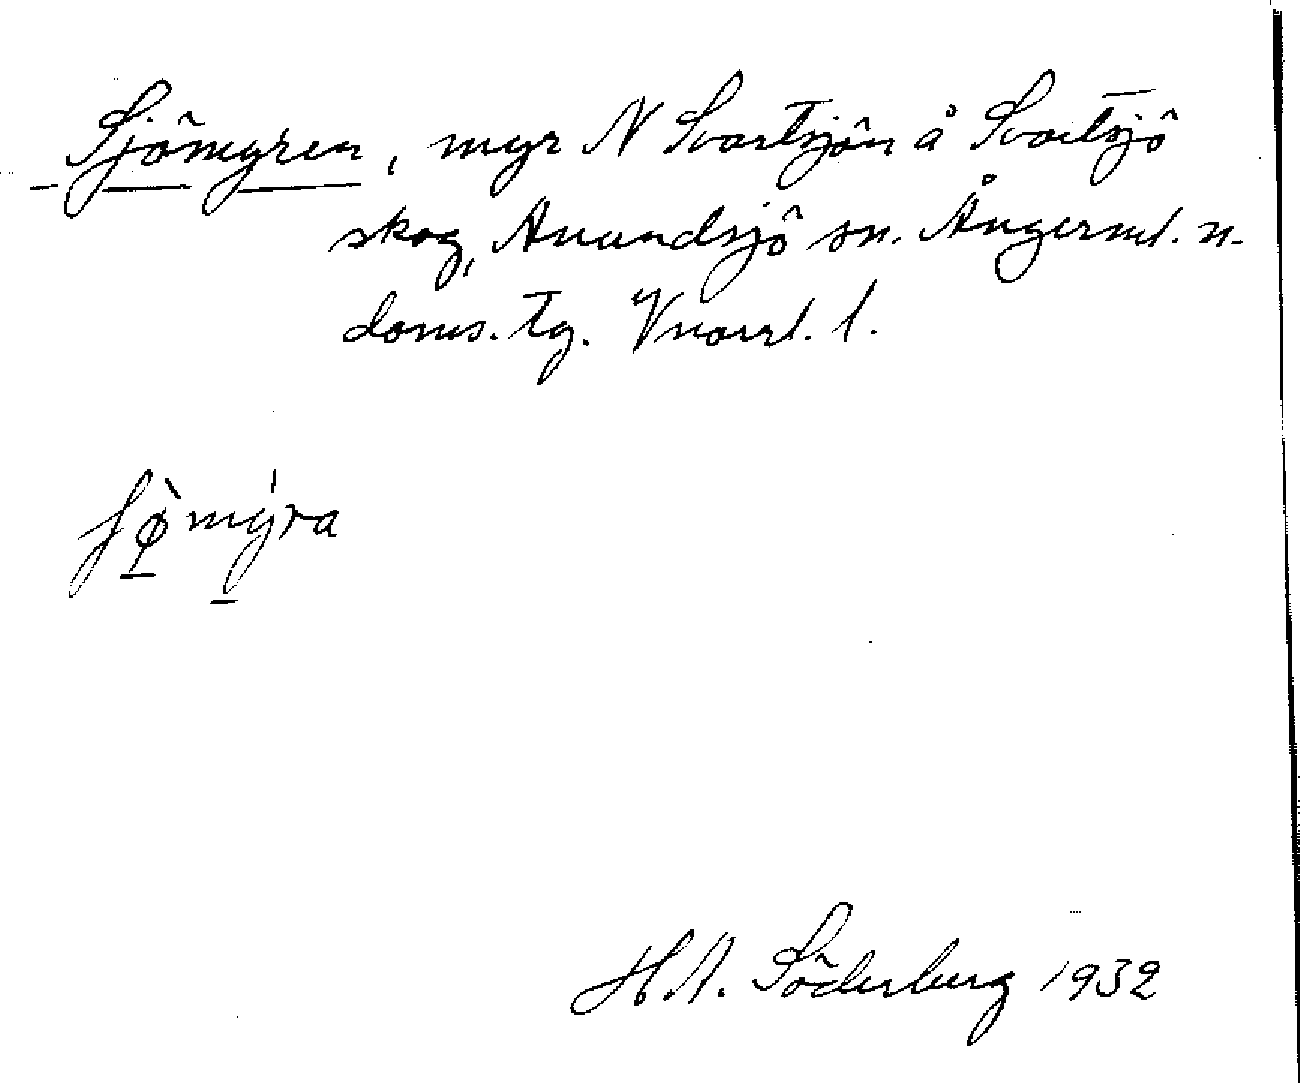 Sjömyren, myr N Svartsjön å Svartsjö
skog, Anundsjö sn. Ångerml. n.
doms. tg. Vnorrl. l.
ʃø̀mýra
H.A. Söderberg 1932